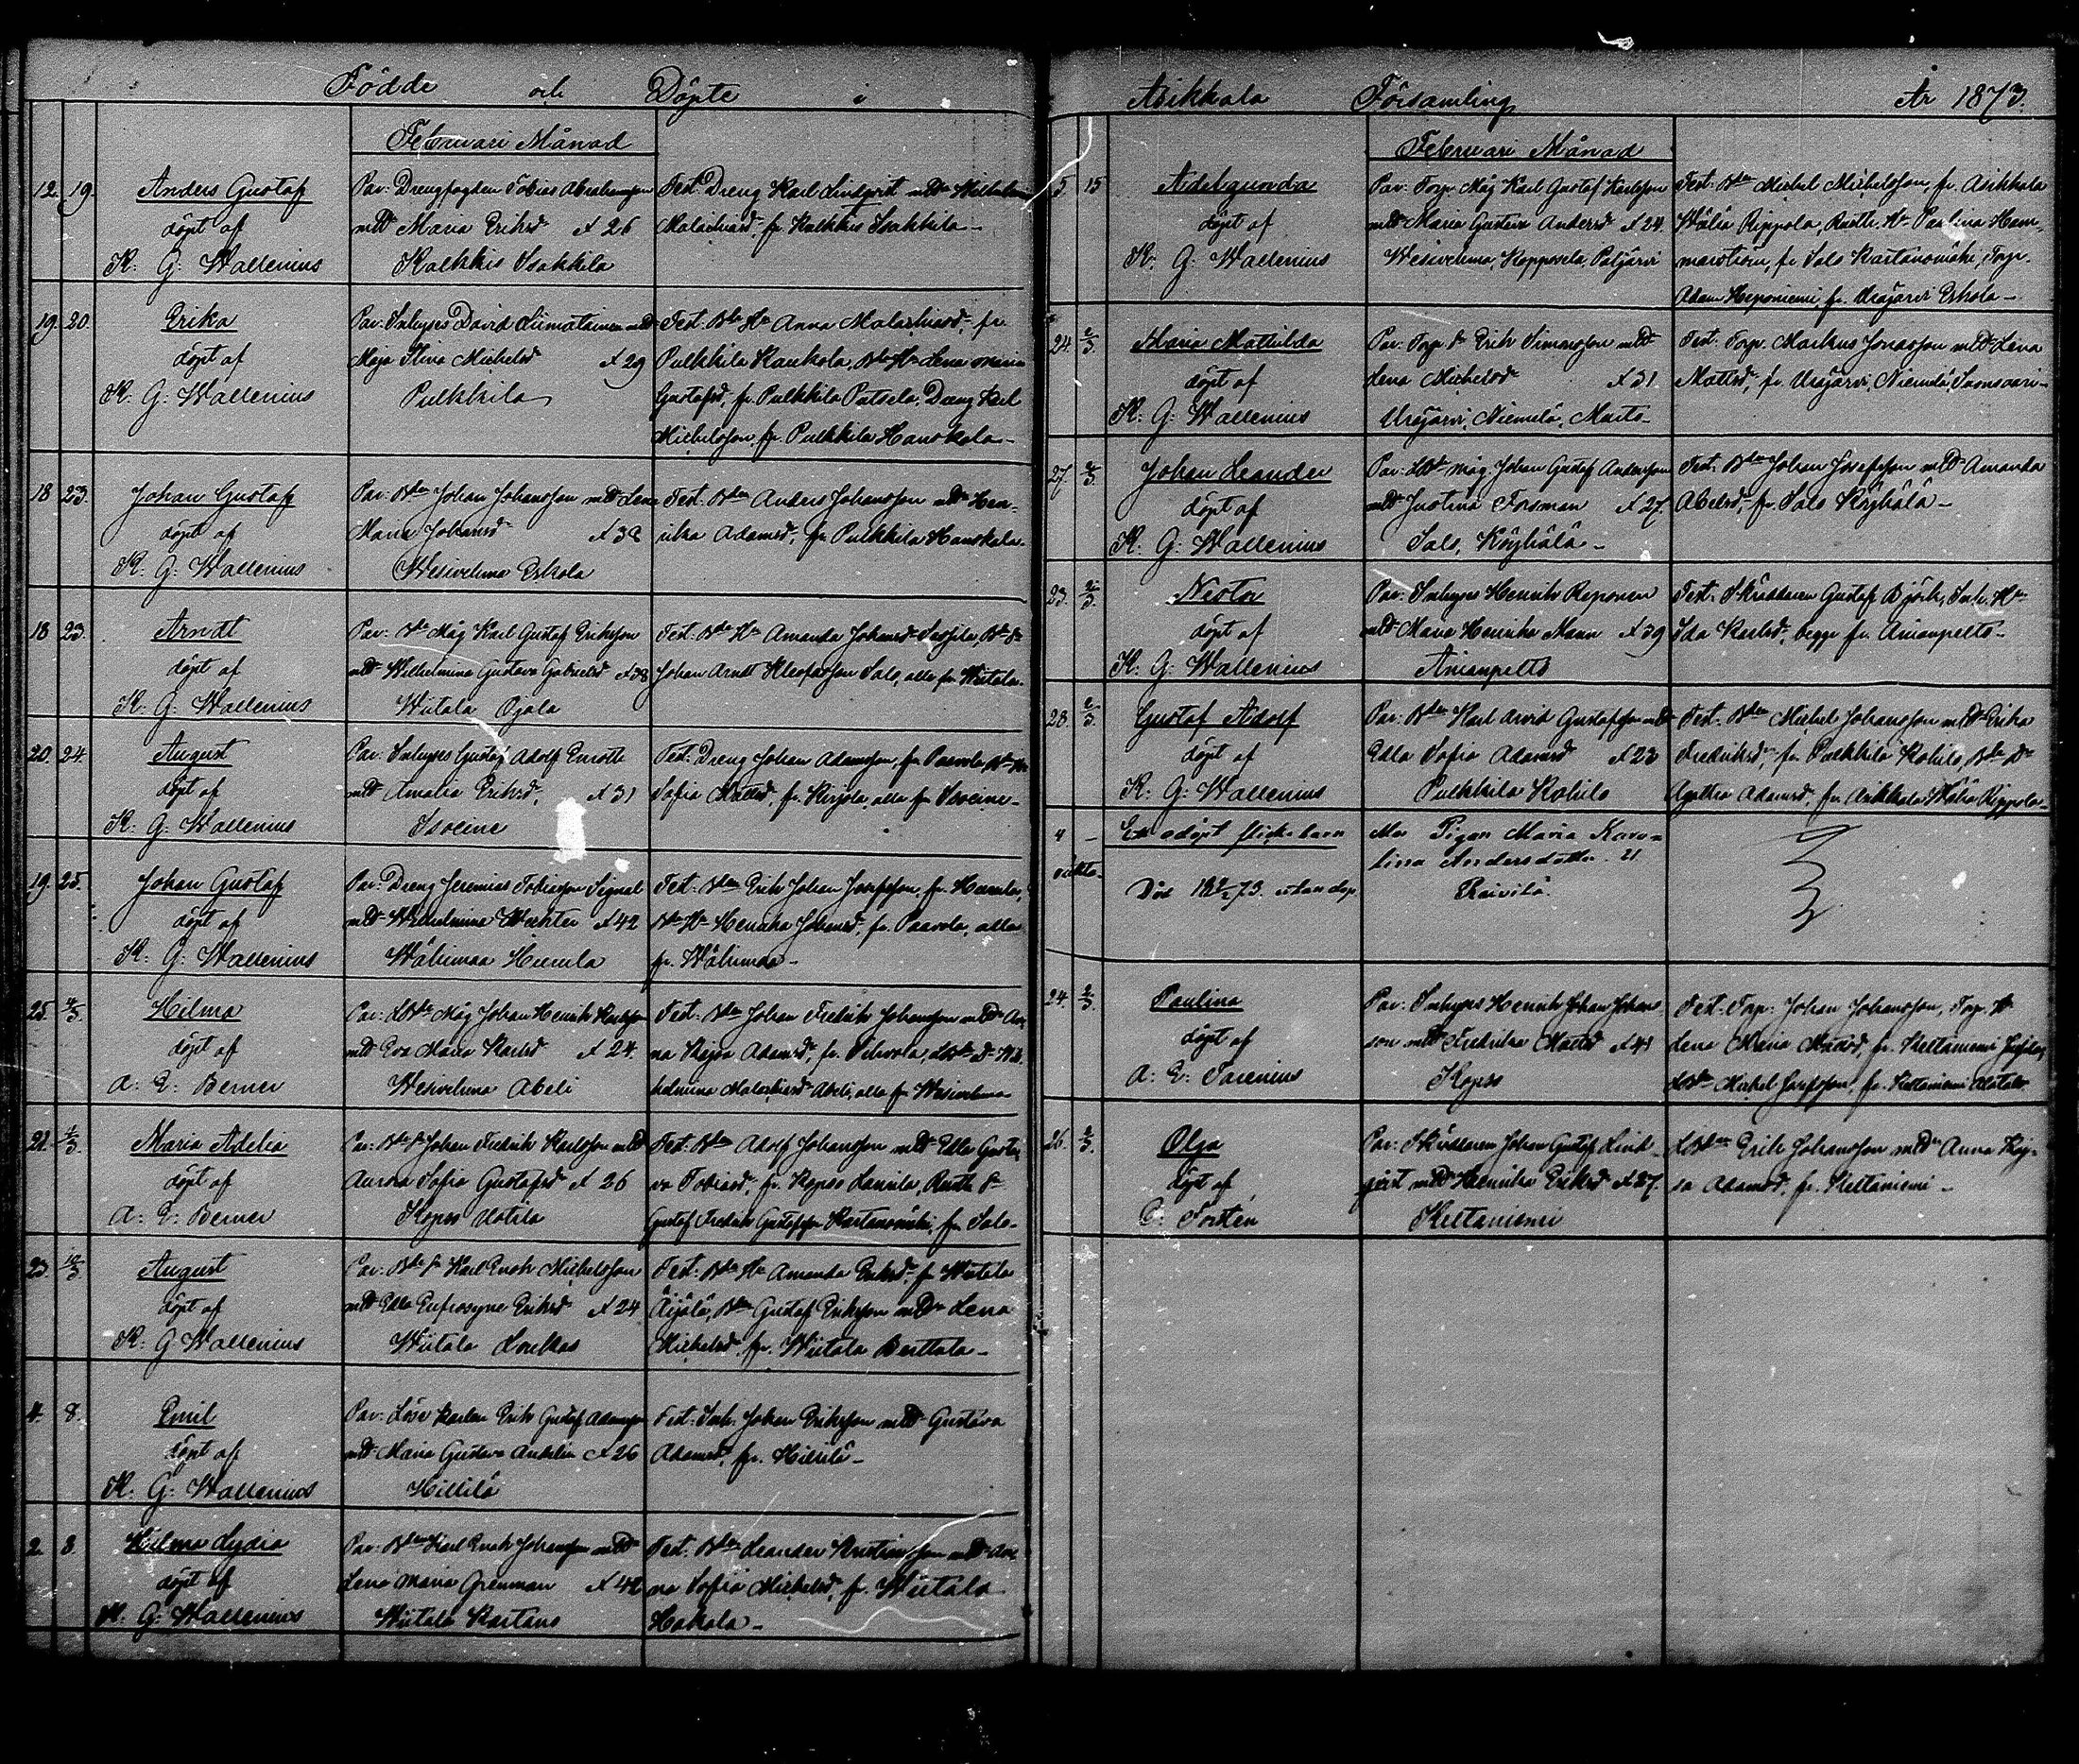 Födde och Döpte i
Februari Månad
12. 19. Anders Gustaf
döpt af
K. G. Wallenius
Par: Drengfogden Tobias Abrahamsson
mD Maria Eriksd. Å 26
Kalkkis Isakkila
Test. Dreng Karl Lindqvist mDa Wilhelmina
Malachiasd, fr. Kalkkis Isakkila
19. 20. Erika
döpt af
K. G. Wallenius
Par: Inhyses David Liimatainen mD
Maja Stina Michelsd Å 29
Pulkkila
Test: Bda Hu Anna Malachiasd, fr.
Pulkkila Kaukola, Bde Hu Lena Maria
Gustafsd, fr. Pulkkila Putsela, Dreng Karl
Michelsson, fr. Pulkkila Hanskala
18 23. Johan Gustaf
döpt af
K. G. Wallenius
Par: Bden Johan Johansson mD Lena
Maria Johansd Å 38
Wesivehma Eskola
Test. Bden Anders Johansson mDa Hen-
rika Adamsd, fr. Pulkkila Hanskala
18 23. Arndt
döpt af
K. G. Wallenius
Par: Bde Måg Karl Gustaf Eriksson
mD Wilhelmina Gustava Gabrielsd Å 38
Wiitala Ojala
Test: Bde Hu Amanda Johansd
Johan Arndt Kleofasson Salo, alla fr. Wiitala
20. 24. August
döpt af
K. G. Wallenius
Par: Inhyses Gustaf Adolf Enrotte
mD Amalia Eriksd, Å 31
Isoeine
Test: Dreng Johan Adamsson, fr. Paavola Bde Hu
Sofia Mattsd, fr. Kirjola alla fr Isoeine
19. 25. Johan Gustaf
döpt af
K. G. Wallenius
Par: Dreng Jeremias Tobiasson Signal
mD Wilhelmina Wächter Å 42
Wähimaa Hiemla
Test: Bden Erik Johan Josefsson, fr.
Bde Hu Henrika Johansd, fr. Paavola, alla
fr. Wähimaa
25. 4/3. Hilma
döpt af
A: E: Berner
Par: LBde Måg Johan Henrik Karlsson
mD Eva Maria Karlsd Å 24.
Wesivehma Abeli
Test. Bden Johan Fredrik Johansson mDa An-
na Kajsa Adamsd, fr. LBde Dr Wil-
helmina Malachiasd Abeli, alla fr Wesivehma
21. 1/3. Maria Adelia
döpt af
A: E: Berner
Par: Bde Sn Johan Fredrik Karlsson mD
Aurora Sofia Gustafsd Å 26
Kopso Uotila
Test: Bden Adolf Johansson mD Edla Gusta-
va Tobiasd, fr. Kopso Lauila, Rusth. Sn
Gustaf Fredrik Gustafsson Kartanomäki, fr Salo
23. 10/3 August
döpt af
K. G. Wallenius
Par: Bde Sn Karl Enok Michelsson
mD Edla Eufrosyne Eriksd Å 24
Wiitala Loukkas
Test: Bde Hu Amanda Eriksd, fr Wiitala
Äijälä, Bden Gustaf Eriksson mDa Lena
Michelsd, fr. Wiitala Berttala
4. 8. Emil
döpt af
K. G. Wallenius
Par: Löse karlen Erik Gustaf Adamsson
mD Maria Gustava Å 26
Hillilä
Test: Inh. Johan Eriksson mD Gustava
Adamsd, fr. Hillilä
2. 8. Hilma Lydia
döpt af
K. G. Wallenius
Par: Bden Karl Enok Johansson mD
Lena Maria Grenman Å 42
Wiitala Kartano
Test. Bden Leander Kristiansson mD An-
na Sofia Michelsd, fr. Wiitala
Hakala
Asikkala Församling År 1873.
Februari Månad
5 15 Adelgunda
döpt af
K. G. Wallenius
Par: Torp. Måg Karl Gustaf Karlsson
mD Maria Gustava Andersd Å 24.
Wesivehma, Kopposela, Patjärvi
Test: Bden Michel Michelsson, fr. Asikkala
Wähä Rippola, Rusth. Hu Paulina Ham-
marström, fr. Salo Kartanomäki, Torp.
Adam Heponiemi, fr. Urajärvi Eskola
24. 2/3. Maria Mathilda
döpt af
K. G. Wallenius
Par: Torp Sn Erik Simonsson mD
Lena Michelsd Å 31
Urajärvi, Niemelä, Marts
Test: Torp. Markus Jonasson mD Lena
Mattsd, fr. Urajärvi, Niemelä,
27. 2/3. Johan Leander
döpt af
K. G. Wallenius
Par: LBde måg. Johan Gustaf Andersson
mD Justina Forsman Å 27.
Salo, Köyhälä
Test: Bden Johan Josefsson mD Amanda
Abelsd, fr. Salo Köyhälä
23. 2/3. Nestor
döpt af
K. G. Wallenius
Par. Inhyses Henrik Reponen
mD Maria Henrika Mann Å 39
Anianpelto
Test: Skräddaren Gustaf Björk, Inh. Hu
Ida Karlsd, begge fr. Anianpelto
28. 2/3. Gustaf Adolf
döpt af
K. G. Wallenius
Par: Bden Karl Arvid Gustafsson mD
Edla Sofia Adamsd Å 23
Pulkkila Kohilo
Test: Bden Michel Johansson mD Erika
Fredriksd, fr Pulkkila Kohilo, Bde Dr
Agatha Adamsd, fr. Asikkala Wähä Rippola
4 — Ett odöpt flickebarn
oäkta
Död 18 9/2 73. utan dop
Mor Pigan Maria Karo-
lina Andersdotter. 21.
Reivilä.
24. 2/3. Paulina
döpt af
A: E: Sarenius
Par: Inhyses Henrik Johan Johans
son mD Fredrika Mattsd Å 41
Kopso
Test: Torp. Johan Johansson, Torp. Hu
Lena Maria fr. Keltaniemi
LBde Michel Josefsson, fr. Keltaniemi Alatalo
26. 2/3. Olga
döpt af
C: Forstén
Par: Skräddaren Johan Gustaf Lind-
qvist mD Henrika Eriksd Å 27.
Keltaniemi
LBden Erik Johansson mDa Anna Kaj-
sa Adamsd, fr. Keltaniemi